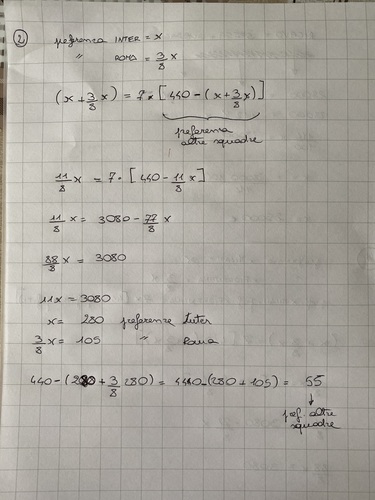 2 preferenza INTER = x
" ROMA = 3/8 x
(x + 3/8 x) = 7 · [440 - (x + 3/8 x)]
preferenza
altre squadre
11/8 x = 7 · [440 - 11/8 x]
11/8 x = 3080 - 77/8 x
88/8 x = 3080
11x = 3080
x = 280 preferenze Inter
3/8 x = 105 " Roma
440 - (280 + 3/8 280) = 440 - (280 + 105) = 55
↓
pref. altre
squadre